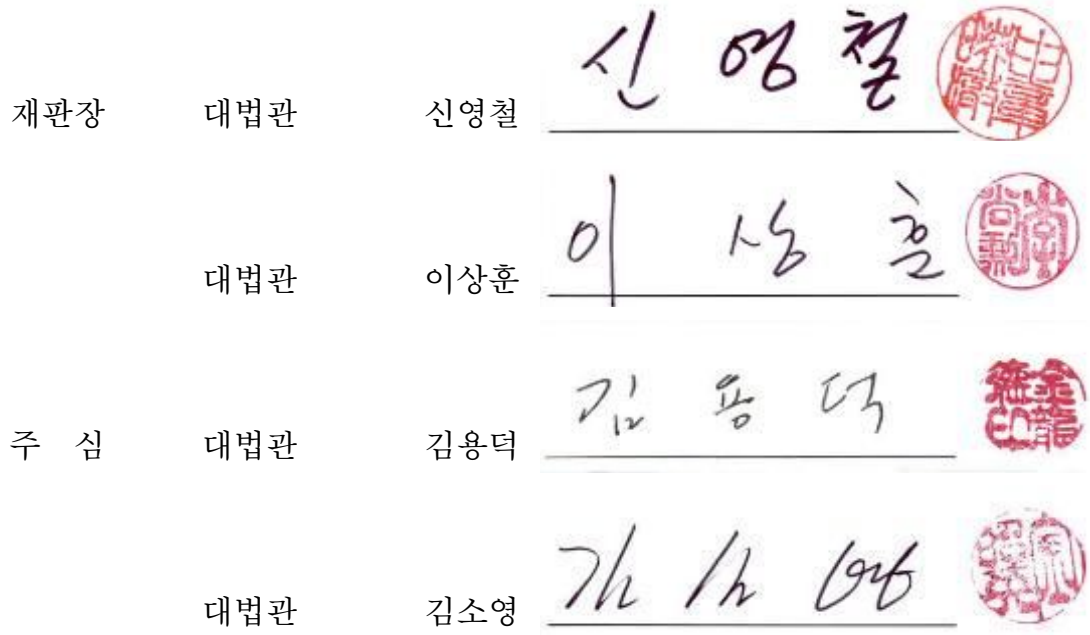 재판장 대법관 신영철 신영철
대법관 이상훈 이상훈
주 심 대법관 김용덕 김용덕
대법관 김소영 김소영